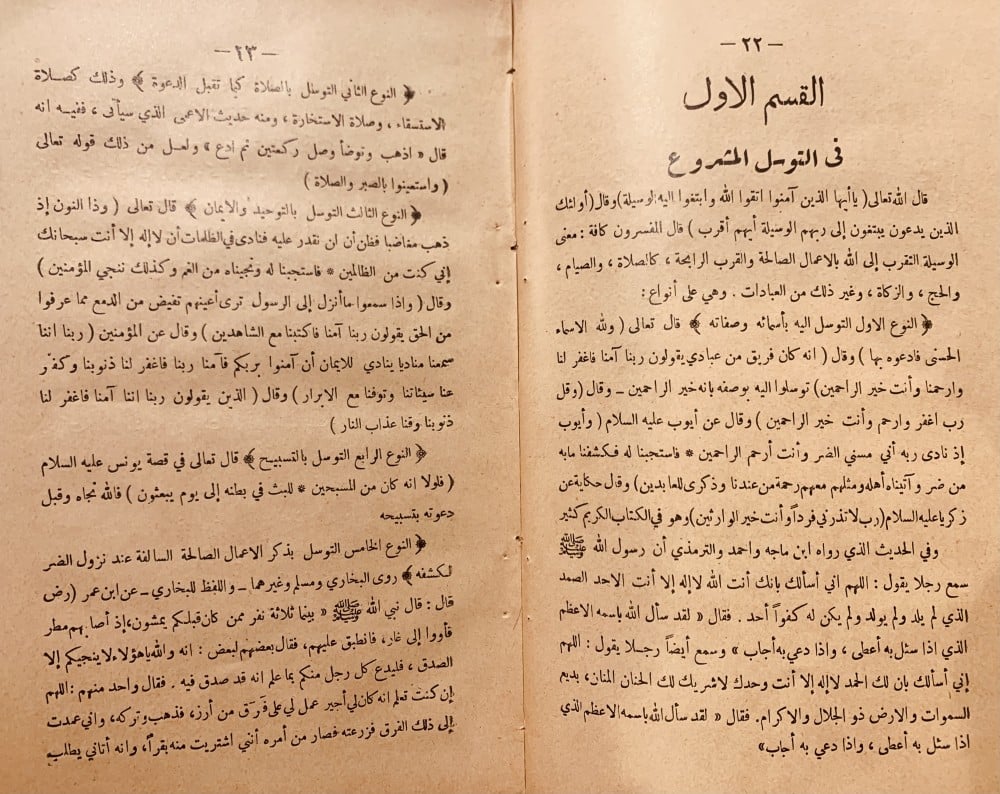 — ٢٢ —
القسم الاول
في التوسل المشروع
قال الله تعالى ( ياأيها الذين آمنوا اتقوا الله وابتغوا اليه الوسيلة ) وقال ( أولئك
الذين يدعون يبتغون إلى ربهم الوسيلة أيهم أقرب ) قال المفسرون كافة : معنى
الوسيلة التقرب إلى الله بالاعمال الصالحة والقرب الرابحة ، كالصلاة ، والصيام ،
والحج ، والزكاة ، وغير ذلك من العبادات . وهي على أنواع :
﴿ النوع الاول التوسل اليه بأسمائه وصفاته ﴾ قال تعالى ( ولله الاسماء
الحسنى فادعوه بها ) وقال ( انه كان فريق من عبادي يقولون ربنا آمنا فاغفر لنا
وارحمنا وأنت خير الراحمين ) توسلوا اليه بوصفه بانه خير الراحمين ـ وقال ( وقل
رب اغفر وارحم وأنت خير الراحمين ) وقال عن أيوب عليه السلام ( وأيوب
إذ نادى ربه أني مسني الضر وأنت أرحم الراحمين * فاستجبنا له فكشفنا مابه
من ضر وآتيناه أهله ومثلهم معهم رحمة من عندنا وذكرى للعابدين ) وقال حكاية عن
زكريا عليه السلام ( رب لا تذرني فرداً وأنت خير الوارثين ) وهو في الكتاب الكريم كثير
وفي الحديث الذي رواه ابن ماجه واحمد والترمذي أن رسول الله ﷺ
سمع رجلا يقول : اللهم اني أسألك بانك أنت الله لا إله إلا أنت الاحد الصمد
الذي لم يلد ولم يولد ولم يكن له كفواً أحد . فقال « لقد سأل الله باسمه الاعظم
الذي اذا سئل به أعطى ، واذا دعي به أجاب » وسمع أيضاً رجلا يقول : اللهم
إني أسألك بان لك الحمد لا إله إلا أنت وحدك لاشريك لك الحنان المنان، بديع
السموات والارض ذو الجلال والاكرام . فقال « لقد سأل الله باسمه الاعظم الذي
اذا سئل به أعطى ، واذا دعي به أجاب»
— ٢٣ —
﴿ النوع الثاني التوسل بالصلاة كيما تقبل الدعوة ﴾ وذلك كصلاة
الاستسقاء ، وصلاة الاستخارة ، ومنه حديث الاعمى الذي سيأتى ، ففيه انه
قال « اذهب وتوضأ وصل ركعتين ثم ادع » ولعل من ذلك قوله تعالى
( واستعينوا بالصبر والصلاة )
﴿ النوع الثالث التوسل بالتوحيد والايمان ﴾ قال تعالى ( وذا النون إذ
ذهب مغاضبا فظن أن لن نقدر عليه فنادى في الظلمات أن لا إله إلا أنت سبحانك
إني كنت من الظالمين * فاستجبنا له ونجيناه من الغم وكذلك ننجي المؤمنين )
وقال ( واذا سمعوا ماأنزل إلى الرسول ترى أعينهم تفيض من الدمع مما عرفوا
من الحق يقولون ربنا آمنا فاكتبنا مع الشاهدين ) وقال عن المؤمنين ( ربنا اننا
سمعنا مناديا ينادي للايمان أن آمنوا بربكم فآمنا ربنا فاغفر لنا ذنوبنا وكفر
عنا سيئاتنا وتوفنا مع الابرار ) وقال ( الذين يقولون ربنا اننا آمنا فاغفر لنا
ذنوبنا وقنا عذاب النار )
﴿ النوع الرابع التوسل بالتسبيح ﴾ قال تعالى في قصة يونس عليه السلام
( فلولا انه كان من المسبحين * للبث في بطنه إلى يوم يبعثون ) فالله نجاه وقبل
دعوته بتسبيحه
﴿ النوع الخامس التوسل بذكر الاعمال الصالحة السالفة عند نزول الضر
لكشفه ﴾ روى البخاري ومسلم وغيرهما ـ واللفظ للبخاري ـ عن ابن عمر (رض
قال : قال نبي الله ﷺ « بينما ثلاثة نفر ممن كان قبلكم يمشون، إذ أصابهم مطر
فآووا إلى غار، فانطبق عليهم، فقال بعضهم لبعض : انه والله ياهؤلاء لا ينجيكم إلا
الصدق ، فليدع كل رجل منكم بما علم انه قد صدق فيه . فقال واحد منهم : اللهم
إن كنت تعلم انه كان لي أجير عمل لي على فرق من أرز، فذهب وتركه، واني عمدت
إلى ذلك الفرق فزرعته فصار من أمره أنني اشتريت منه بقراً، وانه أتاني يطلب